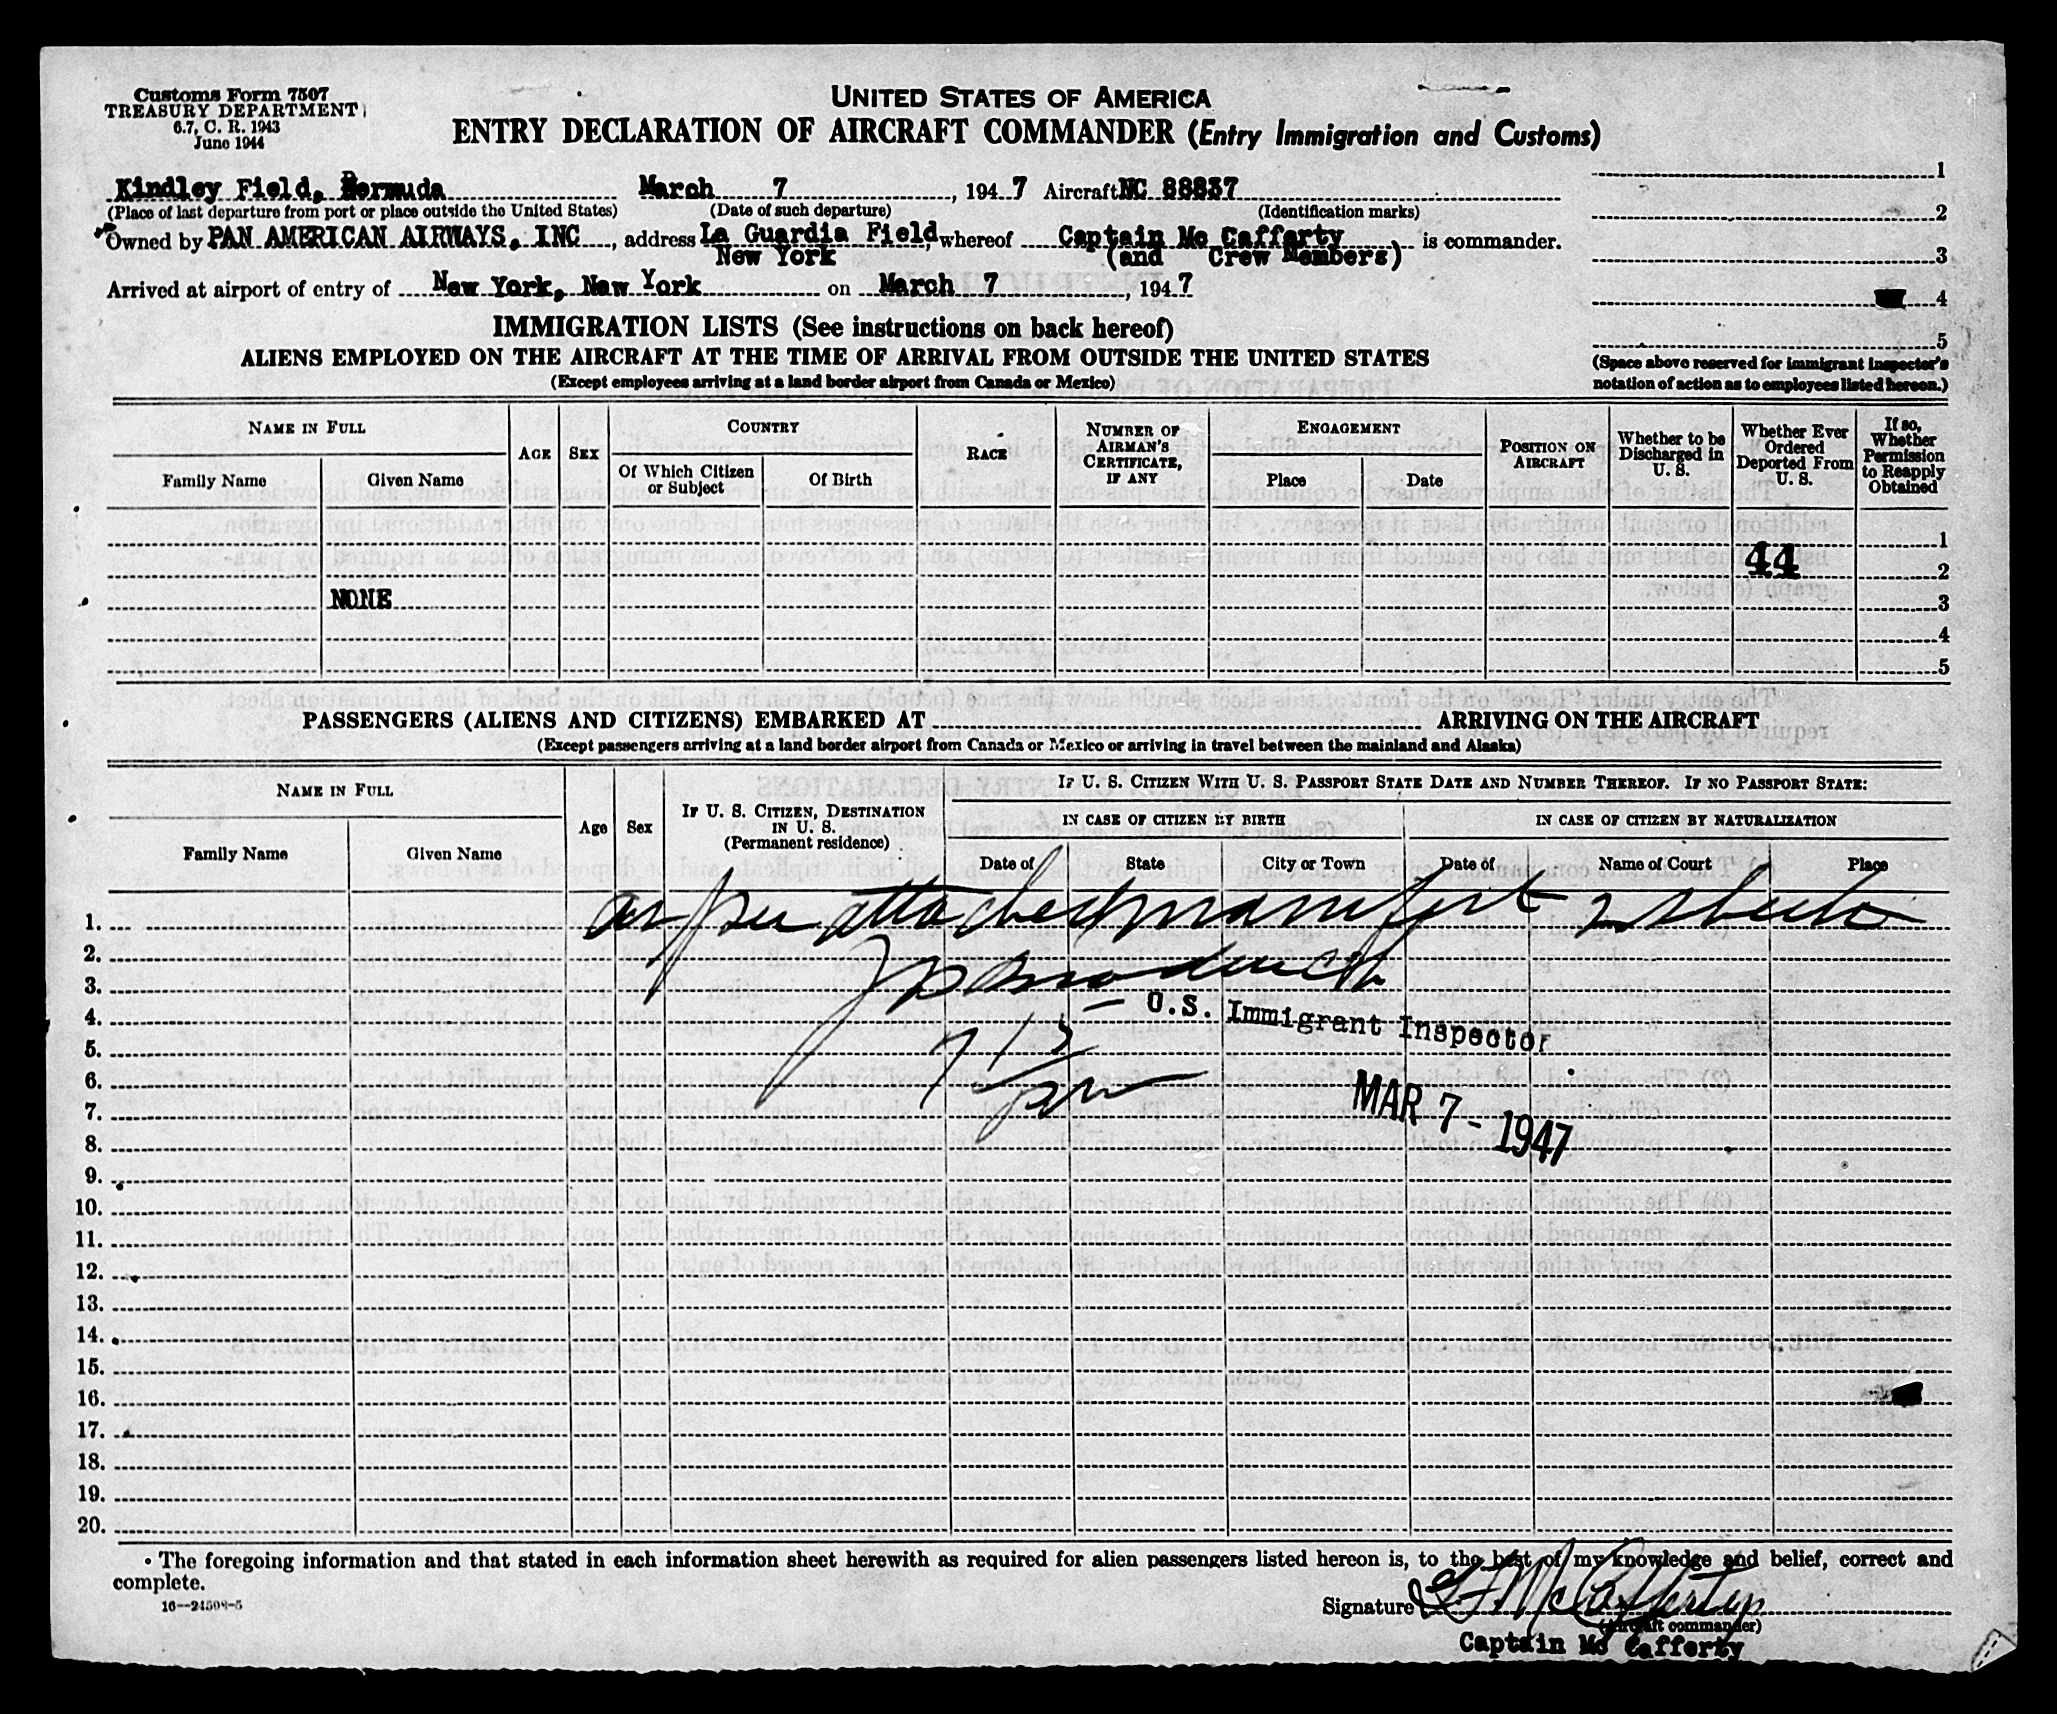 Customs Form 7507
TREASURY DEPARTMENT
6.7, C. R. 1943
June 1944
UNITED STATES OF AMERICA
ENTRY DECLARATION OF AIRCRAFT COMMANDER (Entry Immigration and Customs)
Kindley Field, Bermuda March 7, 1947 Aircraft NC 88837
(Place of last departure from port or place outside the United States) (Date of such departure) (Identification marks)
Owned by PAN AMERICAN AIRWAYS, INC, address La Guardia Field, whereof Captain Mc Cafferty is commander.
New York (and Crew Members)
Arrived at airport of entry of New York, New York on March 7, 1947
1
2
3
4
5
(Space above reserved for immigrant inspector's
notation of action as to employees listed hereon.)
IMMIGRATION LISTS (See instructions on back hereof)
ALIENS EMPLOYED ON THE AIRCRAFT AT THE TIME OF ARRIVAL FROM OUTSIDE THE UNITED STATES
(Except employees arriving at a land border airport from Canada or Mexico)
NAME IN FULL
Family Name
Given Name
AGE
SEX
COUNTRY
Of Which Citizen
or Subject
Of Birth
RACE
NUMBER OF
AIRMAN'S
CERTIFICATE,
IF ANY
ENGAGEMENT
Place
Date
POSITION ON
AIRCRAFT
Whether to be
Discharged in
U. S.
Whether Ever
Ordered
Deported From
U. S.
If so,
Whether
Permission
to Reapply
Obtained
1
44 2
NONE 3
4
5
PASSENGERS (ALIENS AND CITIZENS) EMBARKED AT ARRIVING ON THE AIRCRAFT
(Except passengers arriving at a land border airport from Canada or Mexico or arriving in travel between the mainland and Alaska)
NAME IN FULL
Family Name
Given Name
Age
Sex
IF U. S. CITIZEN, DESTINATION
IN U. S.
(Permanent residence)
IF U. S. CITIZEN WITH U. S. PASSPORT STATE DATE AND NUMBER THEREOF. IF NO PASSPORT STATE:
IN CASE OF CITIZEN BY BIRTH
IN CASE OF CITIZEN BY NATURALIZATION
Date of
State
City or Town
Date of
Name of Court
Place
1. as per attached manifest 2 sheets
2.
3.
4. U.S. Immigrant Inspector
5. 7 15
6. pm
7. MAR 7 - 1947
8.
9.
10.
11.
12.
13.
14.
15.
16.
17.
18.
19.
20.
The foregoing information and that stated in each information sheet herewith as required for alien passengers listed hereon is, to the best of my knowledge and belief, correct and
complete.
16—24508-5
Signature McCafferty
(Aircraft commander)
Captain Mc Cafferty